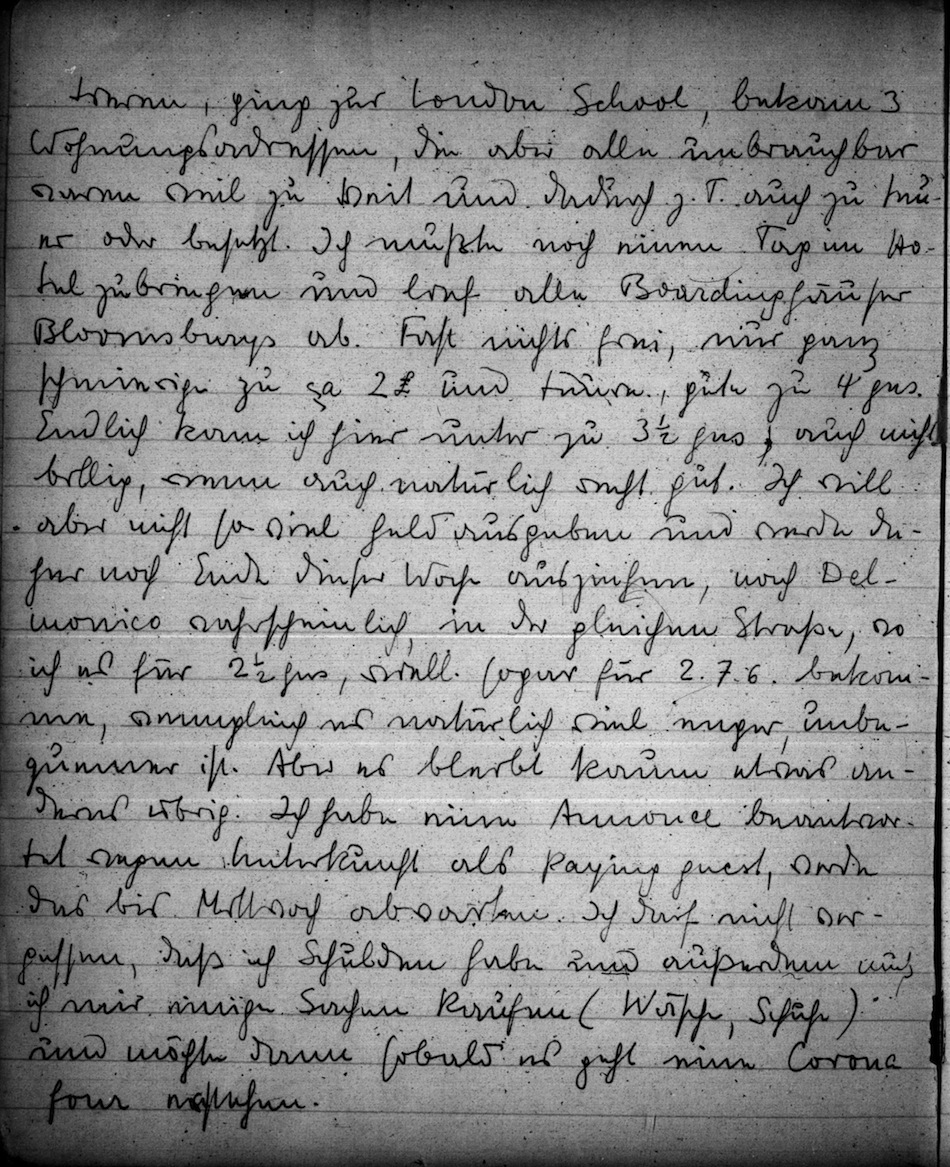 waren, ging zur London School, bekam 3
Wohnungsadressen, die aber alle unbrauchbar
waren weil zu weit und dadurch z. T. auch zu teu-
er oder besetzt. Ich mußte noch einen Tag im Ho-
tel zubringen und lief alle Boardinghäuser
Bloomsburys ab. Fast nichts frei, nur ganz
schmierige zu ca 2£ und teure, gute zu 4 gns.
Endlich kam ich hier unter zu 3½ gns, auch nicht
billig, wenn auch natürlich recht gut. Ich will
aber nicht so viel Geld ausgeben und werde da-
her noch Ende dieser Woche ausziehen, nach Del-
monico wahrscheinlich, in der gleichen Straße, wo
ich es für 2½ gns, viell. sogar für 2.7.6. bekom-
me, wenngleich es natürlich viel enger, unbe-
quemer ist. Aber es bleibt kaum etwas an-
deres übrig. Ich habe eine Annonce beantwor-
tet wegen Unterkunft als paying guest, werde
das bis Mittwoch abwarten. Ich darf nicht ver-
gessen, daß ich Schulden habe und außerdem muß
ich mir einige Sachen kaufen (Wäsche, Schuhe)
und möchte dann sobald es geht eine Corona
four